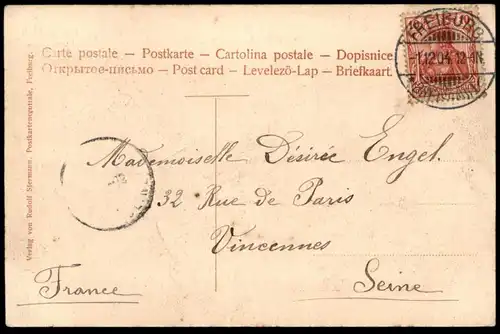 Carte postale – Postkarte – Cartolina postale – Dopisnice
Открытое-письмо – Post card – Levelező-Lap – Briefkaart.
FREIBURG
1.12.04. 12-1N.
Mademoiselle Désirée Engel.
32 Rue de Paris
Vincennes
Seine
France
Verlag von Rudolf Postkartenzentrale, Freiburg.